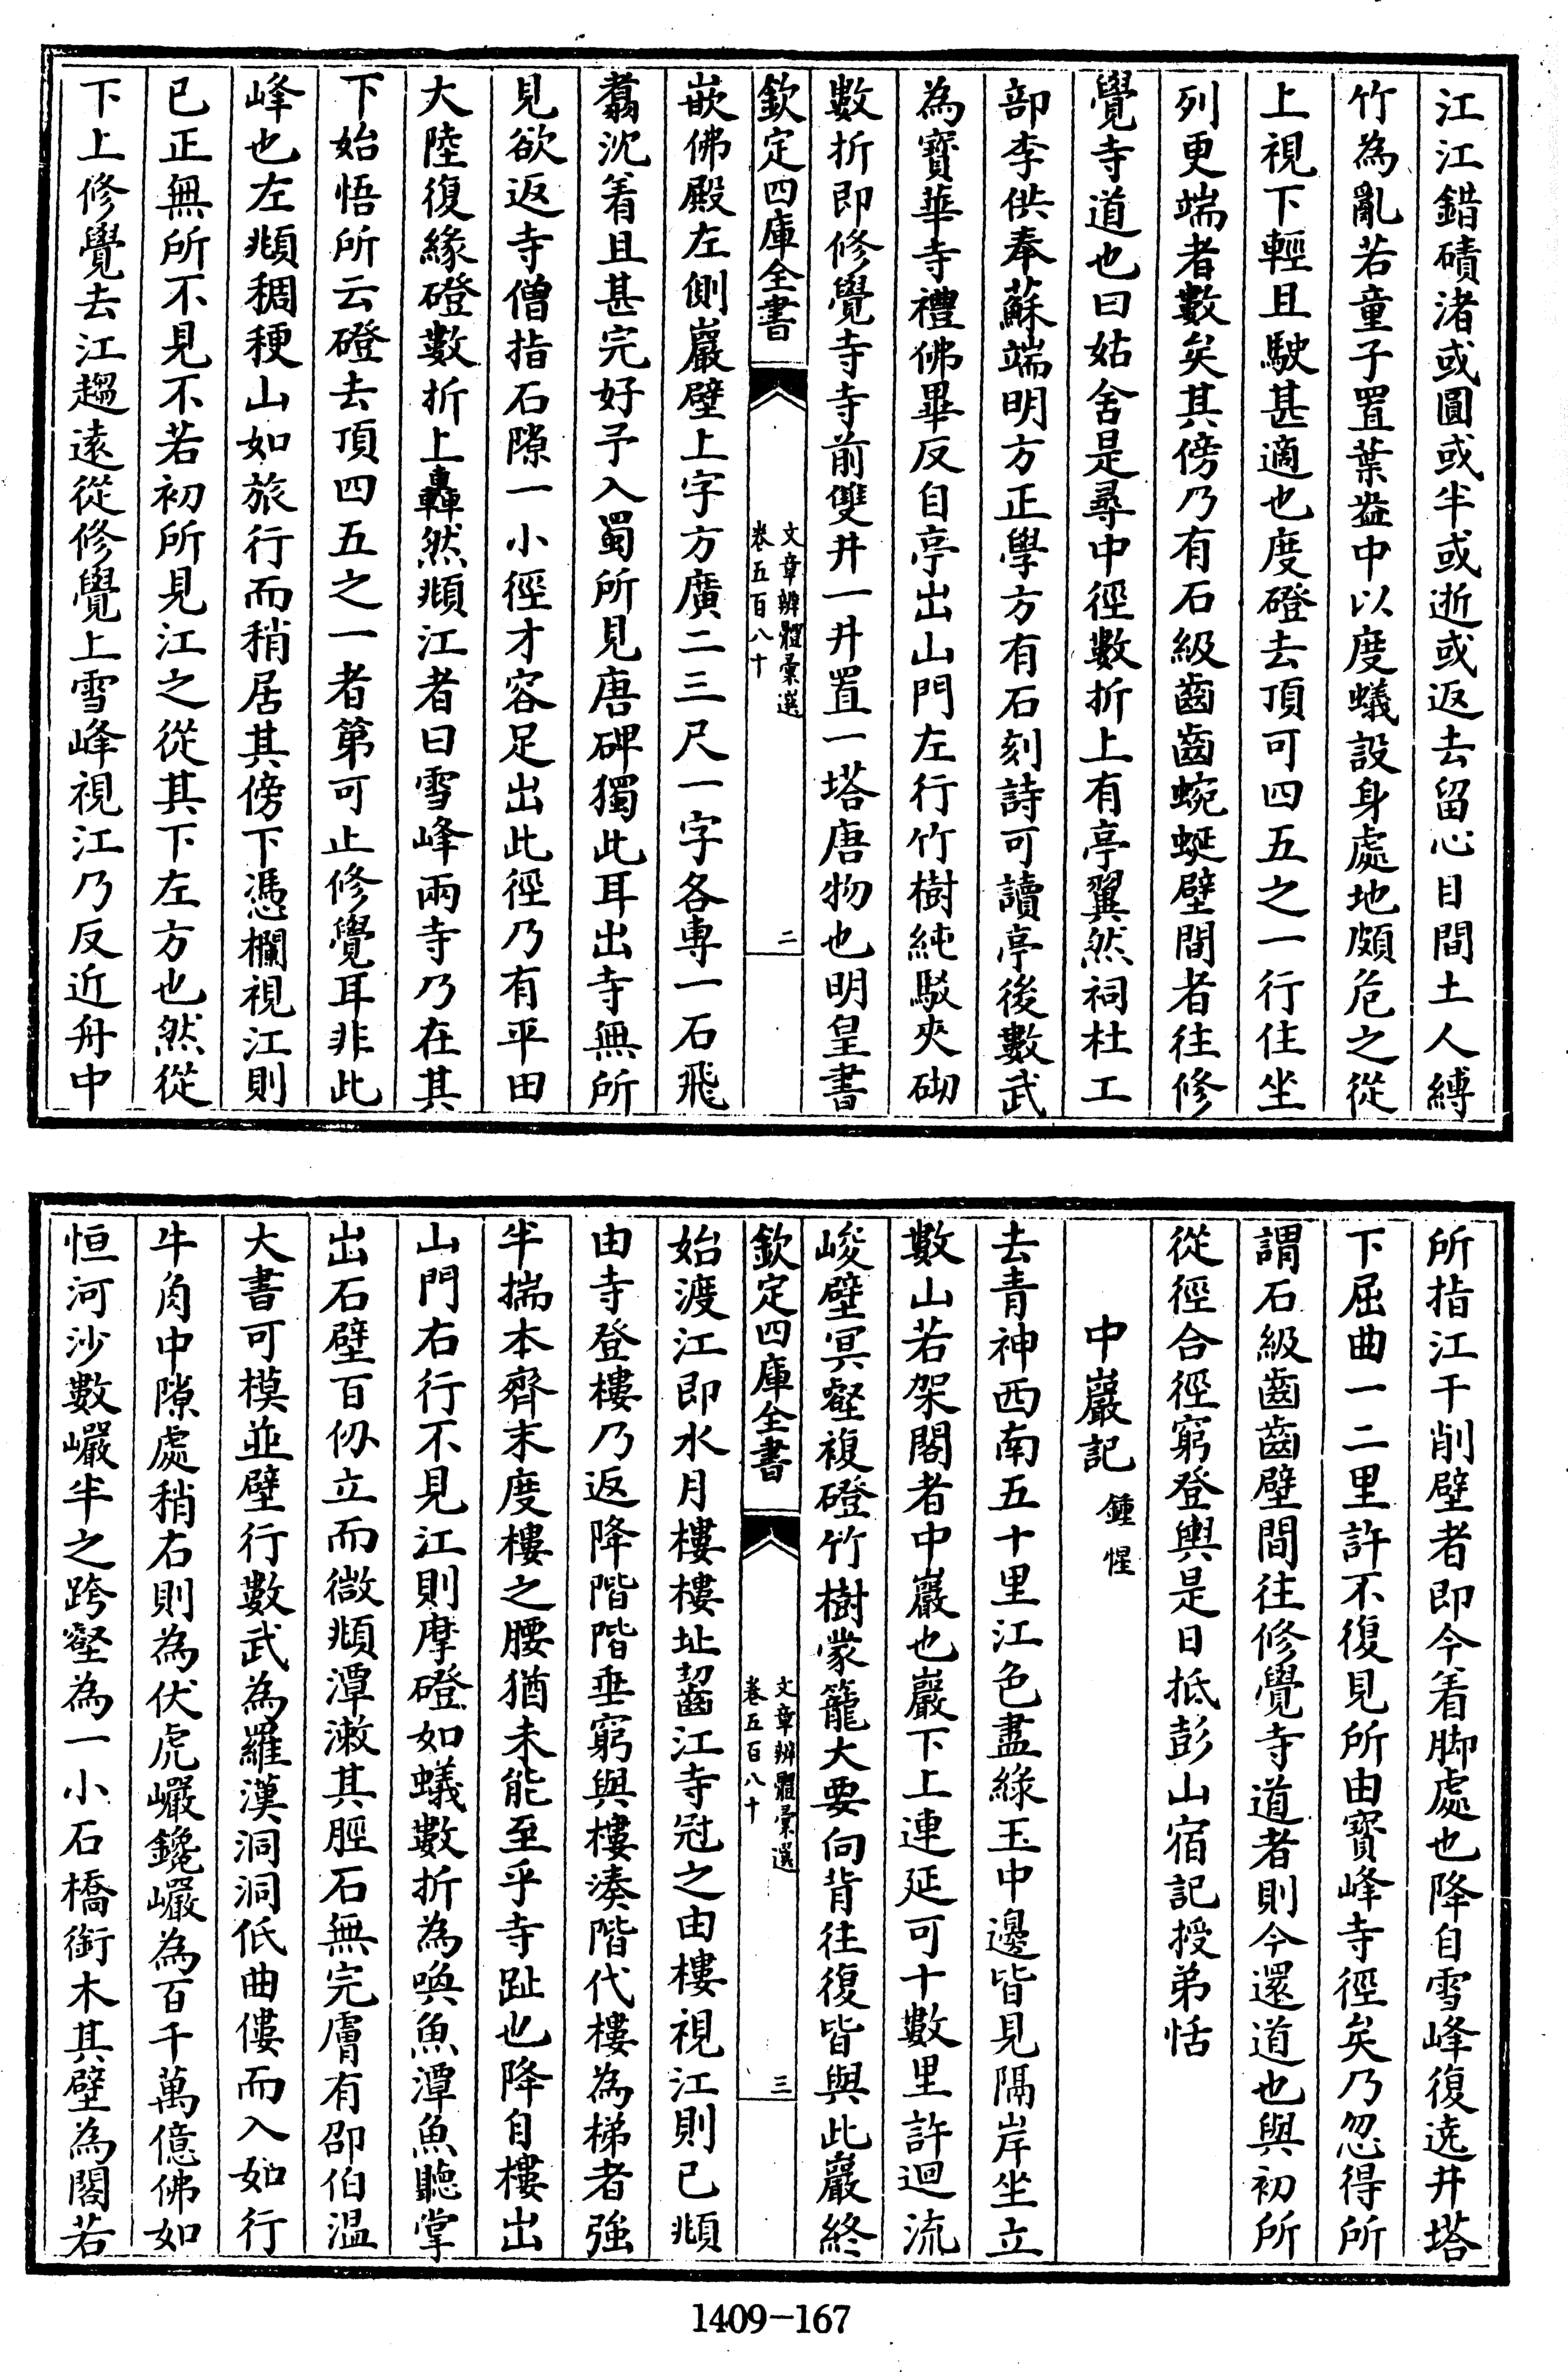 江江錯磧渚或圓或半或逝或返去留心目間土人縛
竹為亂若童子置葉盎中以度蟻設身處地頗危之從
上視下輕且駛甚適也度磴去頂可四五之一行住坐
列更端者數矣其傍乃有石級齒齒蜿蜒壁間者往修
覺寺道也曰姑舍是尋中徑數折上有亭翼然祠杜工
部李供奉蘇端明方正學方有石刻詩可讀亭後數武
為寳華寺禮佛畢反自亭出山門左行竹樹純駁夾砌
數折即修覺寺寺前雙井一井置一塔唐物也明皇書
欽定四庫全書
文章辨體彚選
卷五百八十
二
嵌佛殿左側巖壁上字方廣二三尺一字各專一石飛
翥沈着且甚完好予入蜀所見唐碑獨此耳出寺無所
見欲返寺僧指石隙一小徑才容足出此徑乃有平田
大陸復緣磴數折上轟然頫江者曰雪峰兩寺乃在其
下始悟所云磴去頂四五之一者第可止修覺耳非此
峰也左頫稠稉山如旅行而稍居其傍下憑欄視江則
已正無所不見不若初所見江之從其下左方也然從
下上修覺去江趨遠從修覺上雪峰視江乃反近舟中
所指江干削壁者即今着脚處也降自雪峰復遶井塔
下屈曲一二里許不復見所由寳峰寺徑矣乃忽得所
謂石級齒齒壁間往修覺寺道者則今還道也與初所
從徑合徑窮登輿是日抵彭山宿記授弟恬
中巖記 鍾惺
去青神西南五十里江色盡綠玉中邊皆見隔岸坐立
數山若架閣者中巖也巖下上連延可十數里許迴流
峻壁冥壑複磴竹樹蒙籠大要向背往復皆與此巖終
欽定四庫全書
文章辨體彚選
卷五百八十
三
始渡江即水月樓樓址齧江寺冠之由樓視江則已頫
由寺登樓乃返降階階垂窮與樓湊階代樓為梯者強
半揣本齊末度樓之腰猶未能至乎寺趾也降自樓出
山門右行不見江則摩磴如蟻數折為喚魚潭魚聽掌
出石壁百仞立而微頫潭漱其脛石無完膚有邵伯温
大書可模並壁行數武為羅漢洞洞低曲僂而入如行
牛角中隙處稍右則為伏虎巗鑱巗為百千萬億佛如
恒河沙數巗半之跨壑為一小石橋銜木其壁為閣若
1409-167